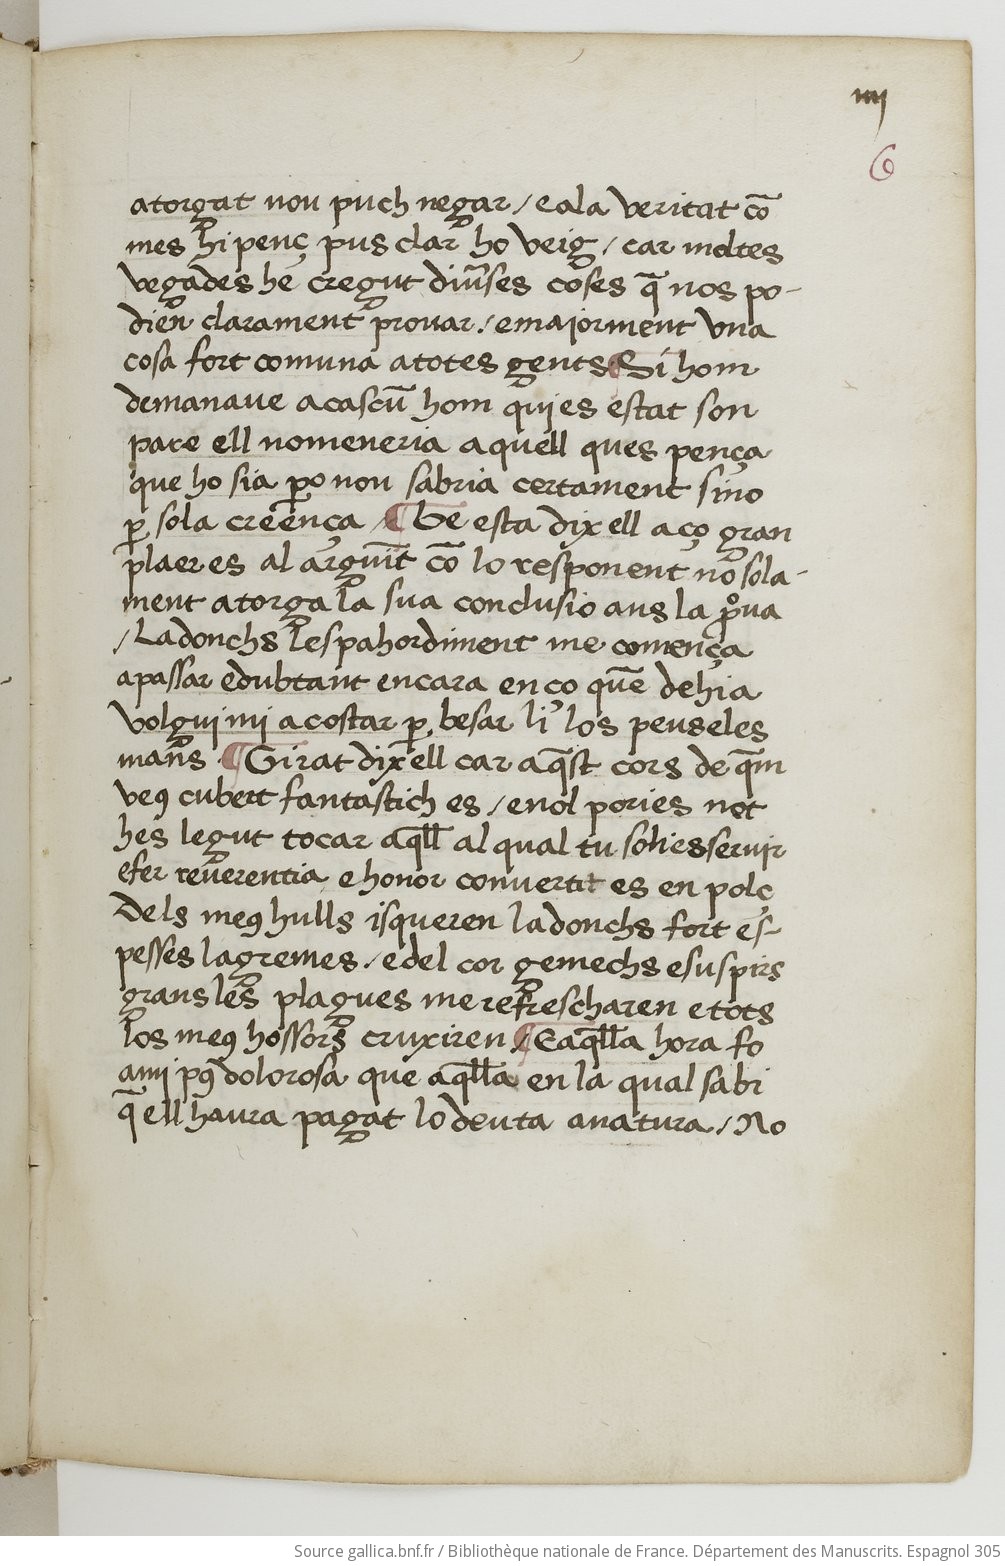 iiij
6
atorgat nou puch negar / e ala veritat cō
mes hi penç pus clar ho veig / car moltes
vegades he cregut diūses coses q̄ nos po-
dien clarament provar / e maiorment vna
cosa fort comuna a totes gents ¶ Si hom
demanaue a cascū hom qui es estat son
pare ell nomeneria aquell ques pença
que ho sia ꝑo nou sabria certament sino
ꝑ sola creença / ¶ Be esta dix ell aço gran
plaer es al arguīt cō lo responent no sola-
ment atorga la sua conclusio ans la ꝓua
/ Ladonchs lespahordiment me comença
a passar e dubtant encara en ço quē dehia
volgui mi acostar ꝑ besar li los peus e les
mans ¶ Girat dix ell car aq̄st cors de q̄m
veꝯ cubert fantastich es / e nol pories not
hes legut tocar aq̄ll al qual tu solies servir
e fer reuerentia e honor convertit es en polç
Dels meꝯ hulls isqueren ladonchs fort es-
pesses lagremes / e del cor gemechs e suspirs
grans les plagues me refrescharen e tots
los meꝯ hossors cruxiren / ¶ E aq̄lla hora fo
a mi pꝯ dolorosa que aq̄lla en la qual sabi
q̄ ell havia pagat lo deuta a natura / No
Source gallica.bnf.fr / Bibliothèque nationale de France. Département des Manuscrits. Espagnol 305